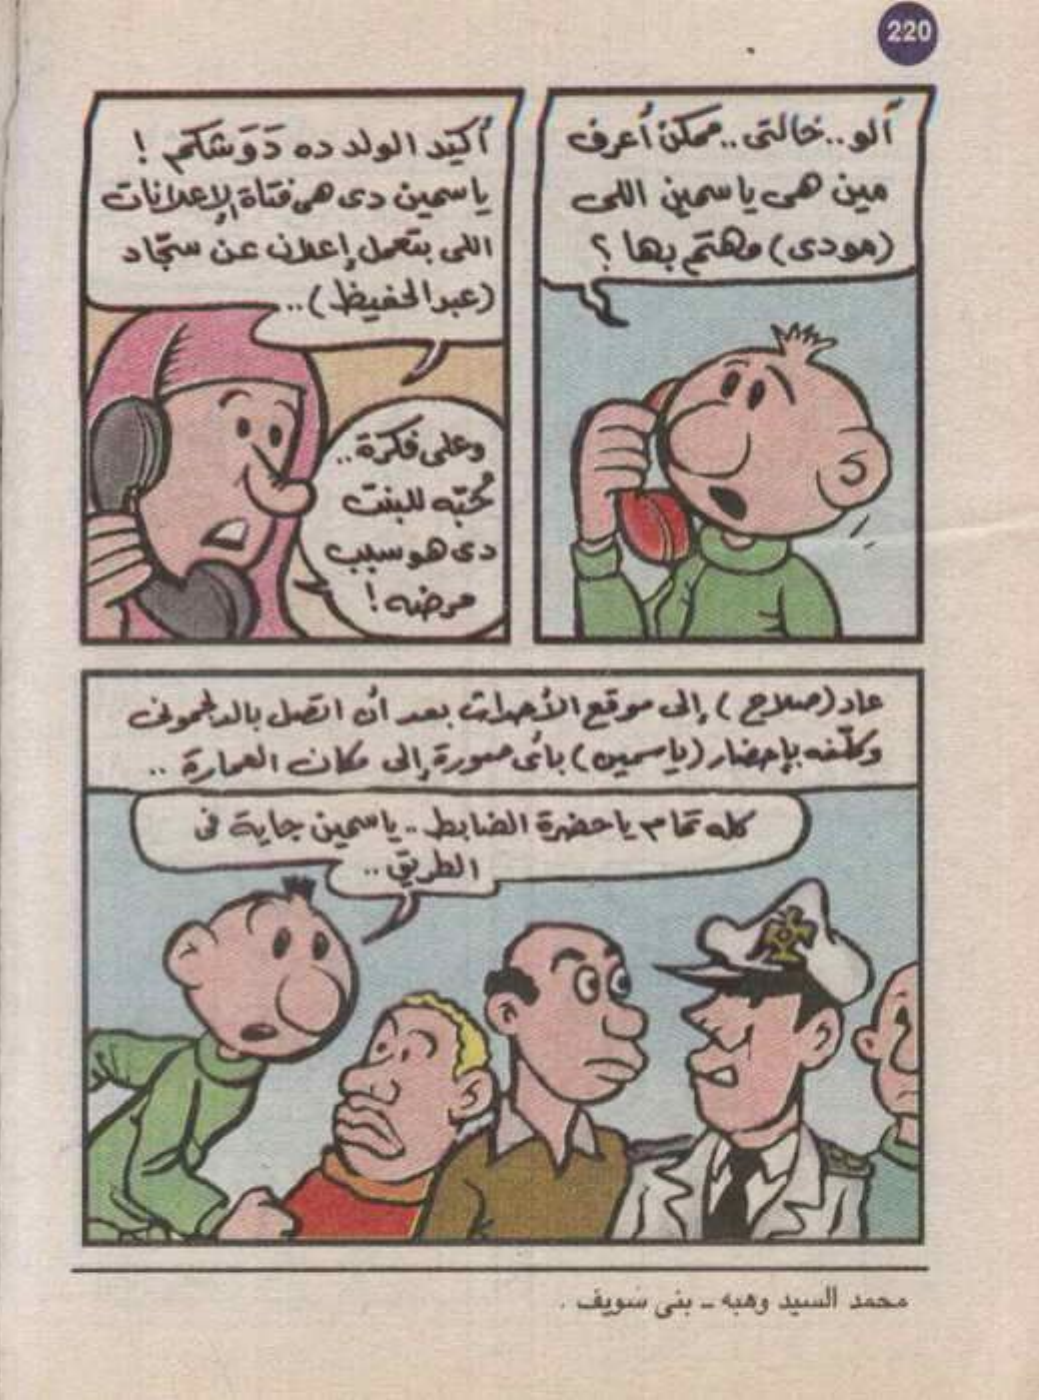 220
ألو..خالتى..ممكن أعرف
مين هى ياسمين اللى
(مودى) مهتم بها ؟
أكيد الولد ده دَوَشكم !
ياسمين دى هى فتاة الإعلانات
اللى بتعمل إعلان عن سجّاد
(عبد الحفيظ)..
وعلى فكرة..
حُبّه للبنت
دى هو سبب
مرضه !
عاد (صلاح) إلى موقع الأحداث بعد أن اتصل بالدلجمونى
وكلّفه بإحضار (ياسمين) بأى صورة إلى مكان العمارة ..
كله تمام يا حضرة الضابط.. ياسمين جاية فى
الطريق ..
محمد السيد وهبه ـ بنى سويف .